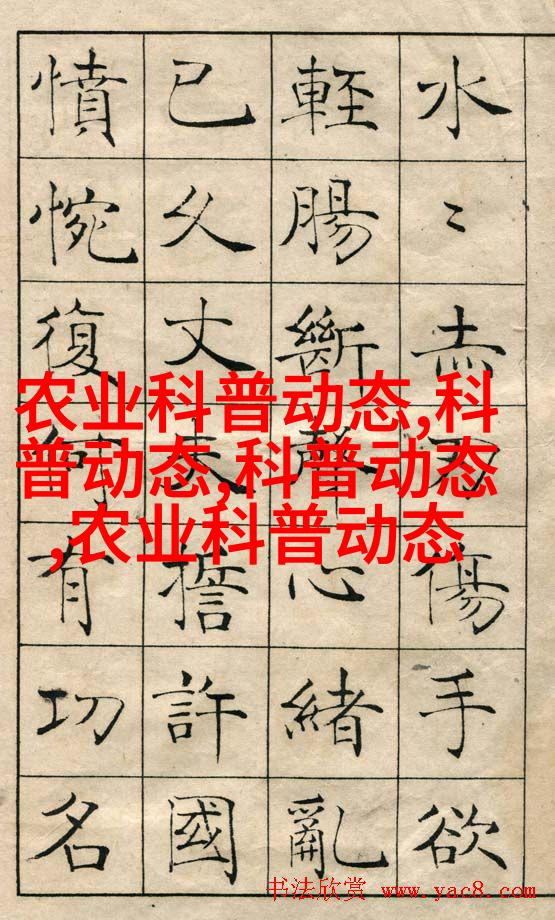 水〻赤刃傷手欲
輕腸斷聲心緒亂
已久丈夫誓許國
憤惋復何有功名
农业科普动态,科
普动态,科普动态
,农业科普动态
书法欣赏 www.yac8.com